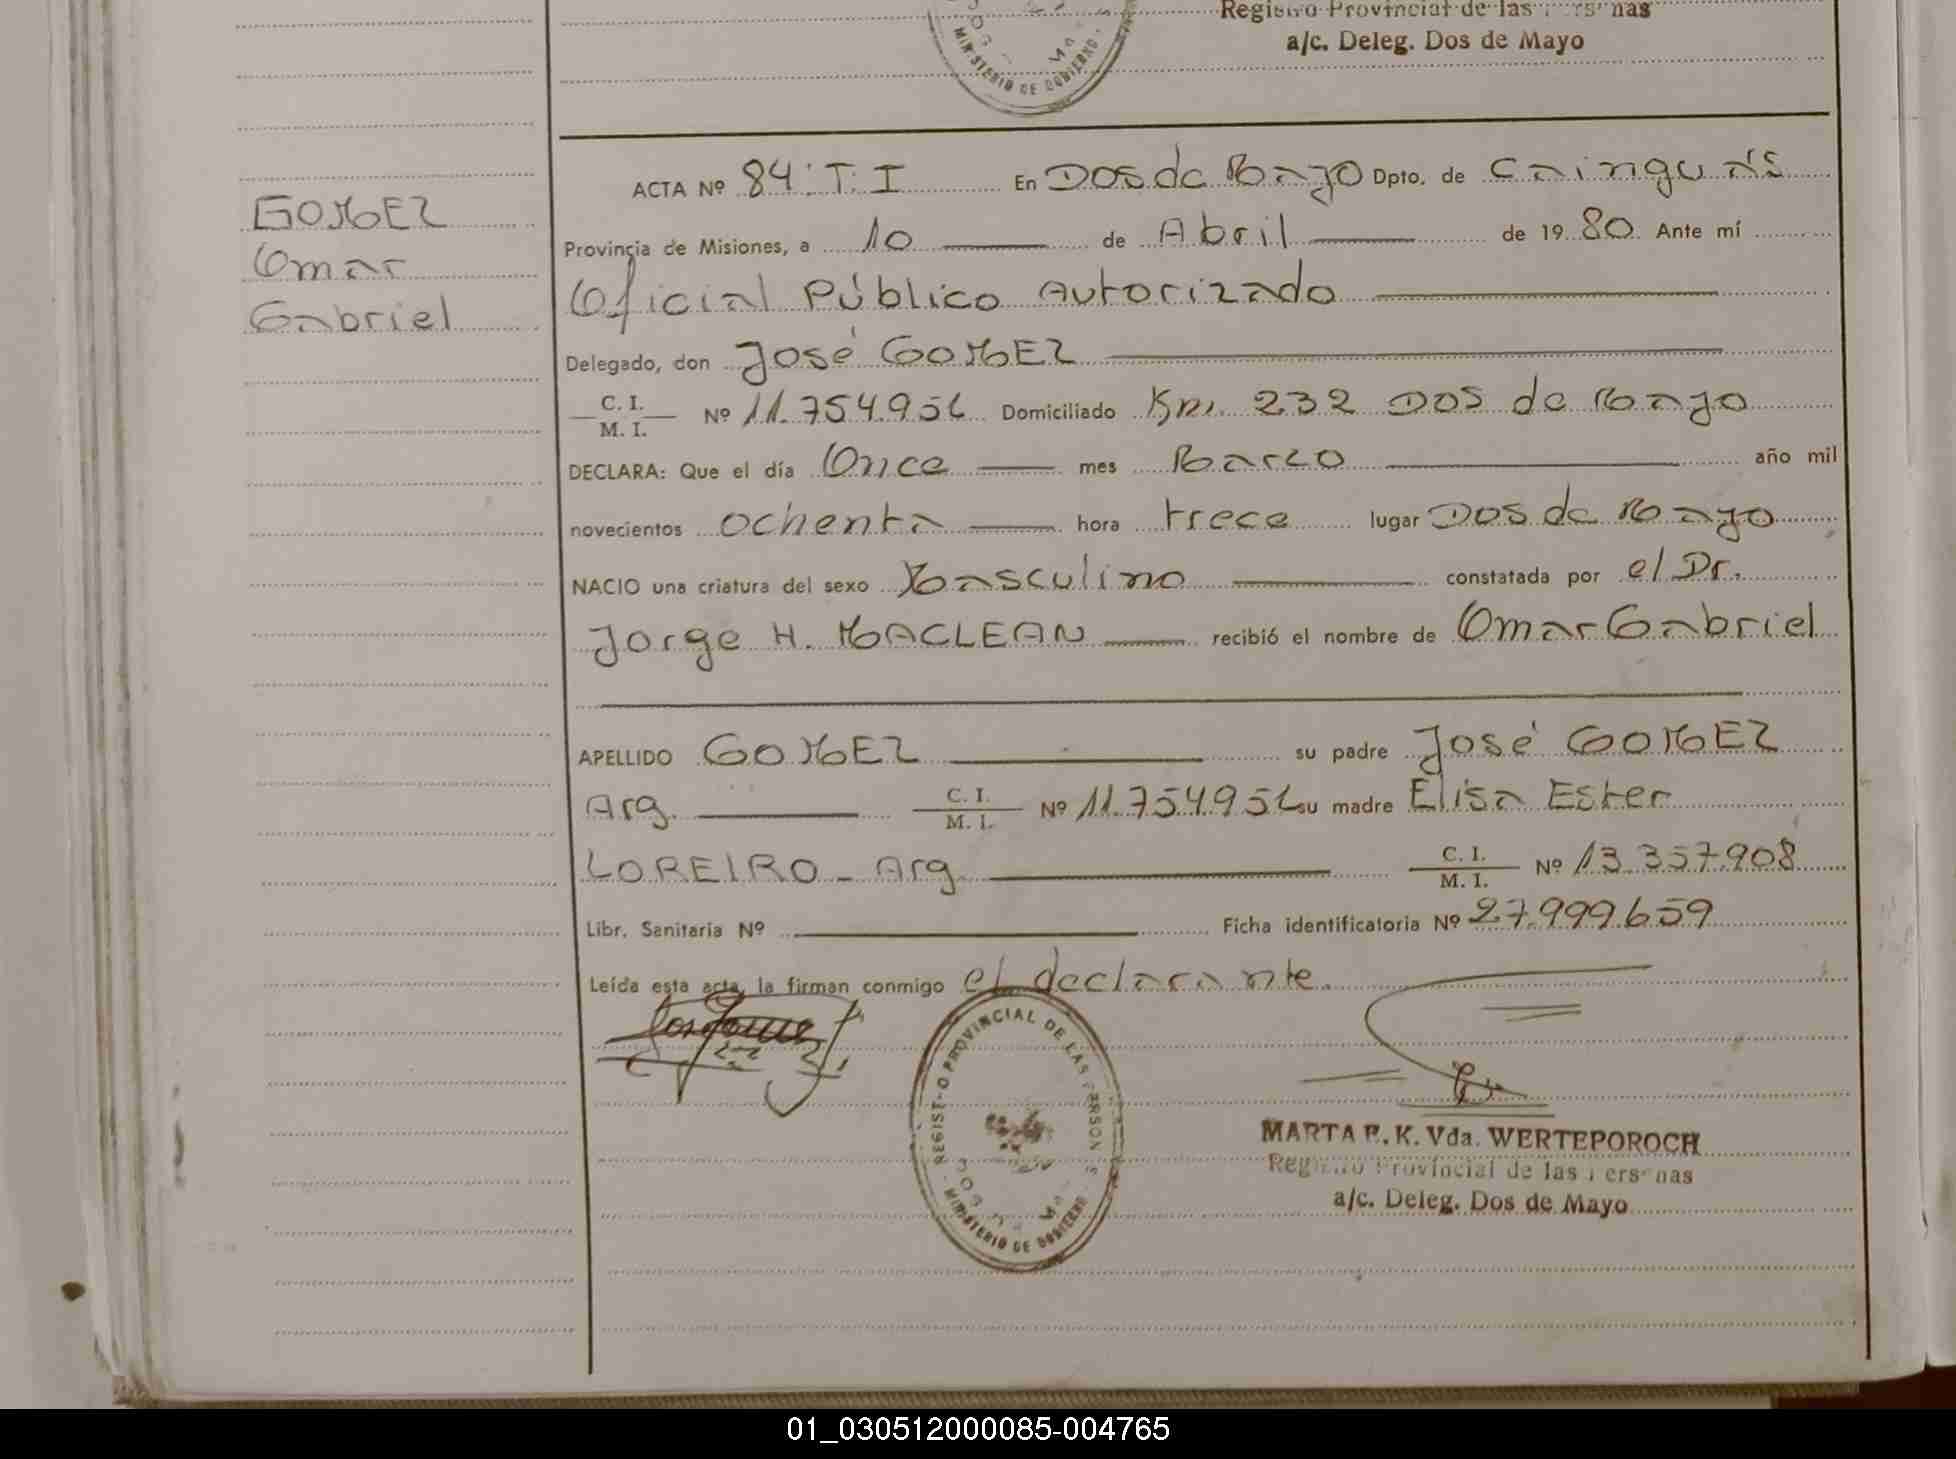 Registro Provincial de las Personas
a/c. Deleg. Dos de Mayo
MINISTERIO DE GOBIERNO
GOMEZ
Omar
Gabriel
ACTA Nº 84 T. I En Dos de Mayo Dpto. de Cainguás
Provincia de Misiones, a 10 de Abril de 1980 Ante mí
Oficial Público Autorizado
Delegado, don José GOMEZ
C. I.
M. I. Nº 11.754.956 Domiciliado Km. 232 Dos de Mayo
DECLARA: Que el día Once mes Marzo año mil
novecientos ochenta hora trece lugar Dos de Mayo
NACIO una criatura del sexo Masculino constatada por el Dr.
Jorge H. MACLEAN recibió el nombre de Omar Gabriel
APELLIDO GOMEZ su padre José GOMEZ
Arg. C. I. M. I. Nº 11.754.956 su madre Elisa Ester
LOREIRO - Arg. C. I. M. I. Nº 13.357.908
Libr. Sanitaria Nº Ficha identificatoria Nº 27.999.659
Leída esta acta, la firman conmigo el declarante.
REGISTRO PROVINCIAL DE LAS PERSONAS
MINISTERIO DE GOBIERNO
MARTA E. K. Vda. WERTEPOROCH
Registro Provincial de las Personas
a/c. Deleg. Dos de Mayo
01_030512000085-004765